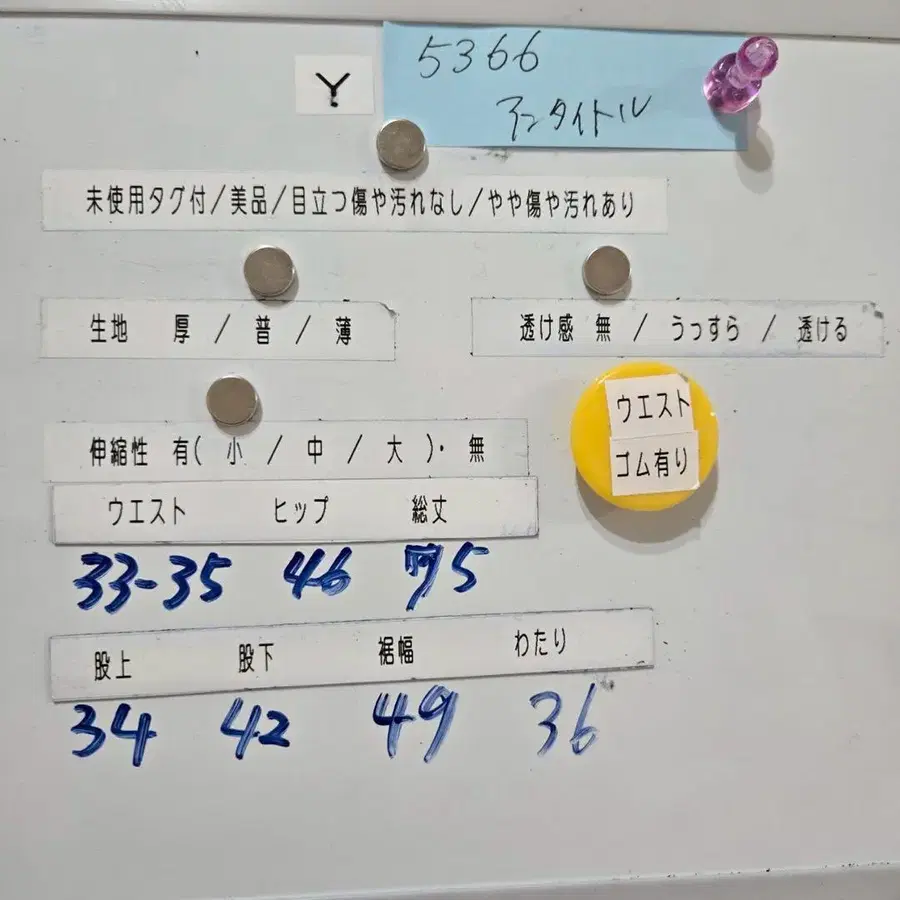 5366
Y
アンタイトル
未使用タグ付/美品/目立つ傷や汚れなし/やや傷や汚れあり
生地 厚 / 普 / 薄
透け感 無 / うっすら / 透ける
伸縮性 有( 小 / 中 / 大 )・ 無
ウエスト
ゴム有り
ウエスト ヒップ 総丈
33-35 46 75
股上 股下 裾幅 わたり
34 42 49 36